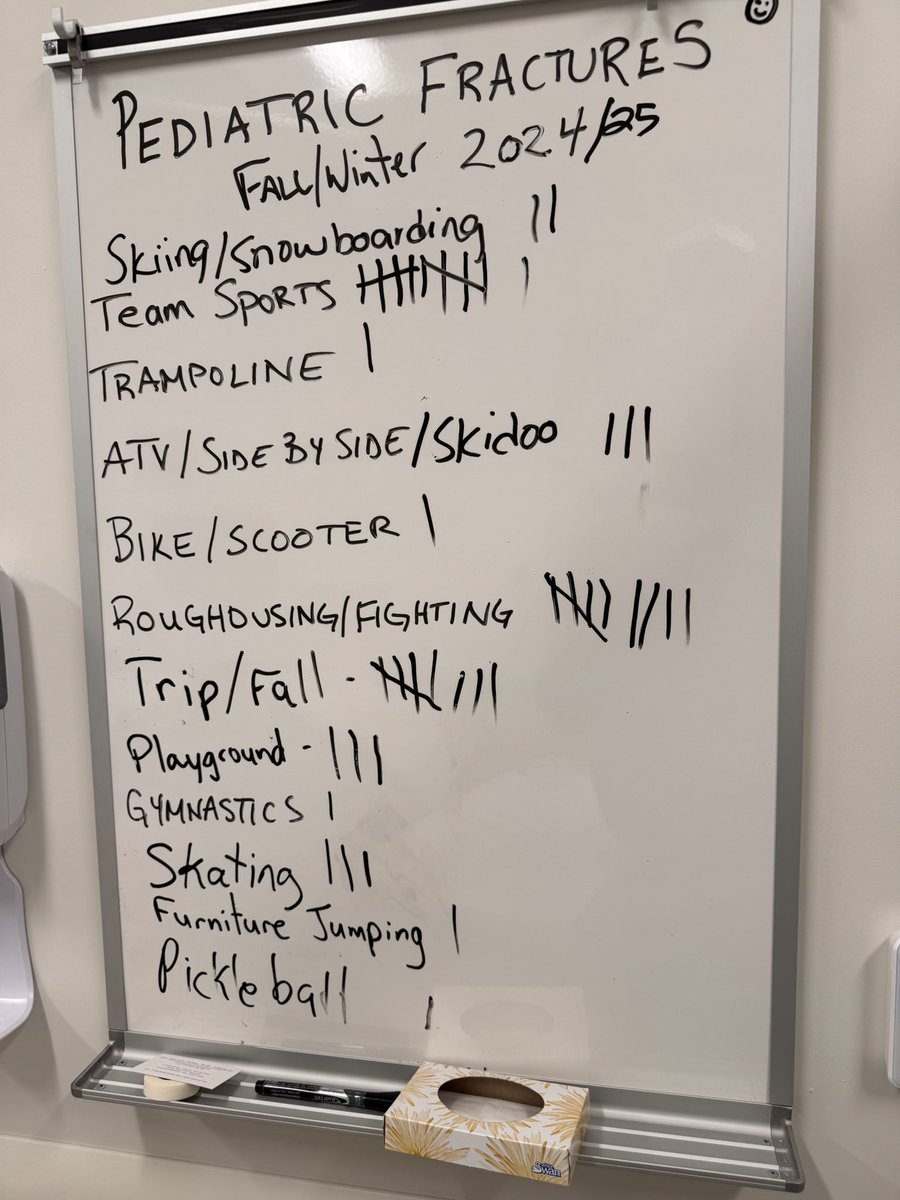 PEDIATRIC FRACTURES
FALL/Winter 2024/25
Skiing/Snowboarding ||
Team SPORTS |||| |||| |
TRAMPOLINE |
ATV/SIDE BY SIDE/Skidoo |||
BIKE/SCOOTER |
ROUGHOUSING/FIGHTING |||| ||||
Trip/Fall - |||| |||
Playground - |||
GYMNASTICS |
Skating |||
Furniture Jumping |
Pickleball |
Swan